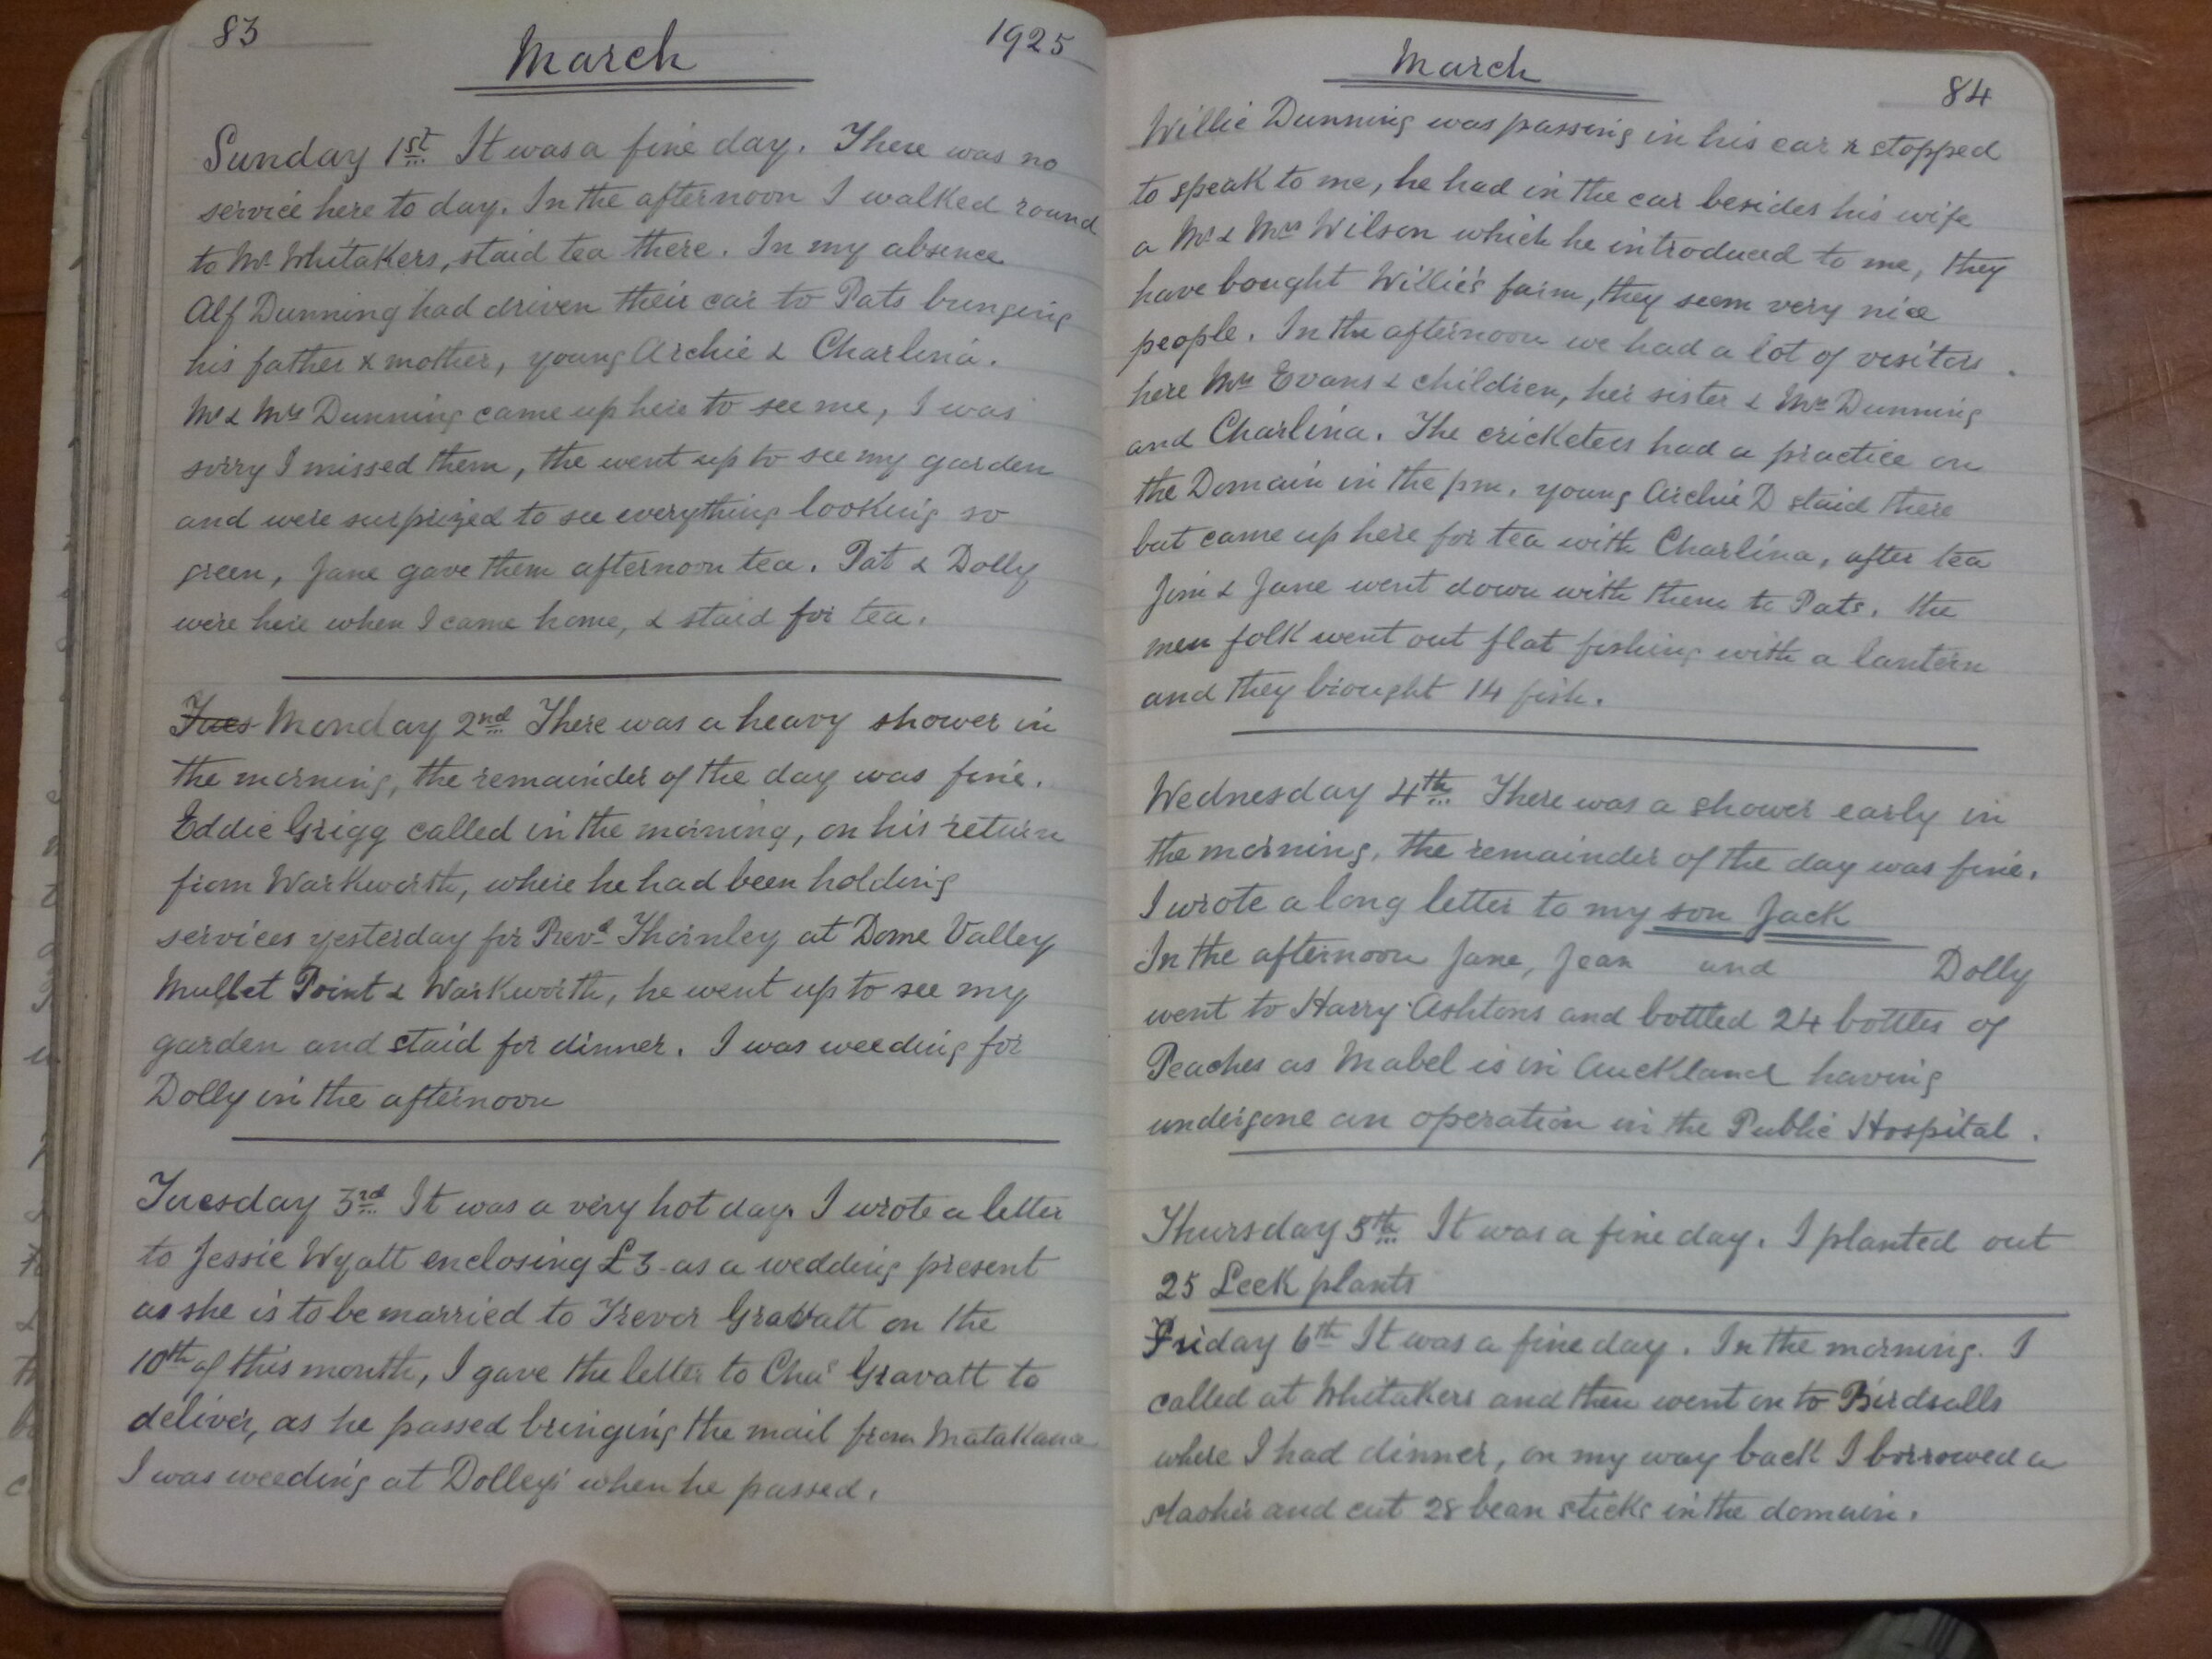 83
1925
March
Sunday 1st It was a fine day. There was no
service here to day. In the afternoon I walked round
to Mr Whitakers, staid tea there. In my absence
Alf Dunning had driven their car to Pats bringing
his father & mother, young Archie & Charlina.
Mr & Mrs Dunning came up here to see me, I was
sorry I missed them, the went up to see my garden
and were surprized to see everything looking so
green, Jane gave them afternoon tea. Pat & Dolly
were here when I came home, & staid for tea.
Tues Monday 2nd There was a heavy shower in
the morning, the remainder of the day was fine.
Eddie Grigg called in the morning, on his return
from Warkworth, where he had been holding
services yesterday for Revd Thornley at Dome Valley
Mullet Point & Warkworth, he went up to see my
garden and staid for dinner. I was weeding for
Dolly in the afternoon
Tuesday 3rd It was a very hot day. I wrote a letter
to Jessie Wyatt enclosing £3 as a wedding present
as she is to be married to Trevor Gravatt on the
10th of this month, I gave the letter to Chas Gravatt to
deliver, as he passed bringing the mail from Matakana
I was weeding at Dolleys when he passed.
March
84
Willie Dunning was passing in his car & stopped
to speak to me, he had in the car besides his wife
a Mr & Mrs Wilson which he introduced to me, they
have bought Willie's farm, they seem very nice
people. In the afternoon we had a lot of visitors.
here Mrs Evans & children, her sister & Mrs Dunning
and Charlina. The cricketers had a practice on
the Domain in the pm. young Archie D staid there
but came up here for tea with Charlina, after tea
Jim & Jane went down with them to Pats. the
men folk went out flat fishing with a lantern
and they brought 14 fish.
Wednesday 4th There was a shower early in
the morning, the remainder of the day was fine.
I wrote a long letter to my son Jack
In the afternoon Jane, Jean and Dolly
went to Harry Ashtons and bottled 24 bottles of
Peaches as Mabel is in Auckland having
undergone an operation in the Public Hospital.
Thursday 5th It was a fine day. I planted out
25 Leek plants
Friday 6th It was a fine day. In the morning. I
called at Whitakers and then went on to Birdsalls
where I had dinner, on my way back I borrowed a
slasher and cut 28 bean sticks in the domain.